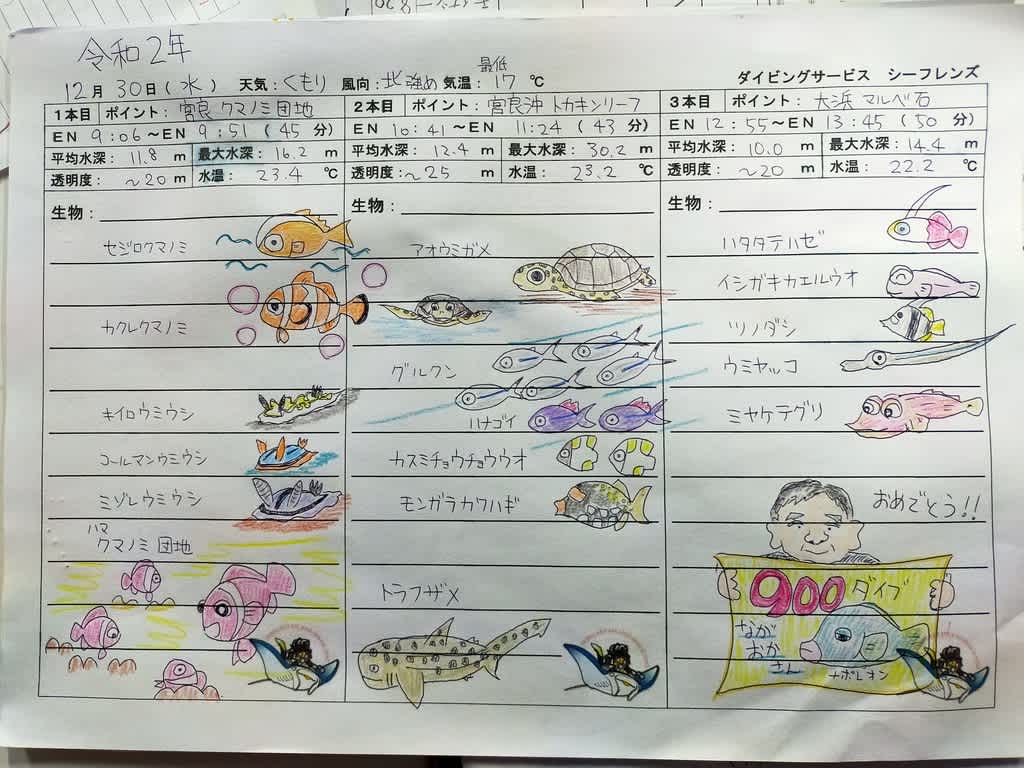 令和2年
最低
12月 30日(水) 天気:くもり 風向:北強め 気温:17 ℃
ダイビングサービス シーフレンズ
1本目 ポイント:宮良 クマノミ団地
EN 9:06~EN 9:51 (45 分)
平均水深: 11.8 m 最大水深: 16.2 m
透明度: ~20 m 水温: 23.4 ℃
生物:
セジロクマノミ
カクレクマノミ
キイロウミウシ
コールマンウミウシ
ミゾレウミウシ
ハマ
クマノミ 団地
2本目 ポイント:宮良沖 トカキンリーフ
EN 10:41~EN 11:24 (43 分)
平均水深: 12.4 m 最大水深: 30.2 m
透明度:~25 m 水温: 23.2 ℃
生物:
アオウミガメ
グルクン
ハナゴイ
カスミチョウチョウウオ
モンガラカワハギ
トラフザメ
3本目 ポイント: 大浜 マルベ石
EN 12:55~EN 13:45 (50 分)
平均水深: 10.0 m 最大水深: 14.4 m
透明度: ~20 m 水温: 22.2 ℃
生物:
ハタタテハゼ
イシガキカエルウオ
ツノダシ
ウミヤッコ
ミヤケテグリ
おめでとう!!
900 ダイブ
なが
おか
さん
ナポレオン